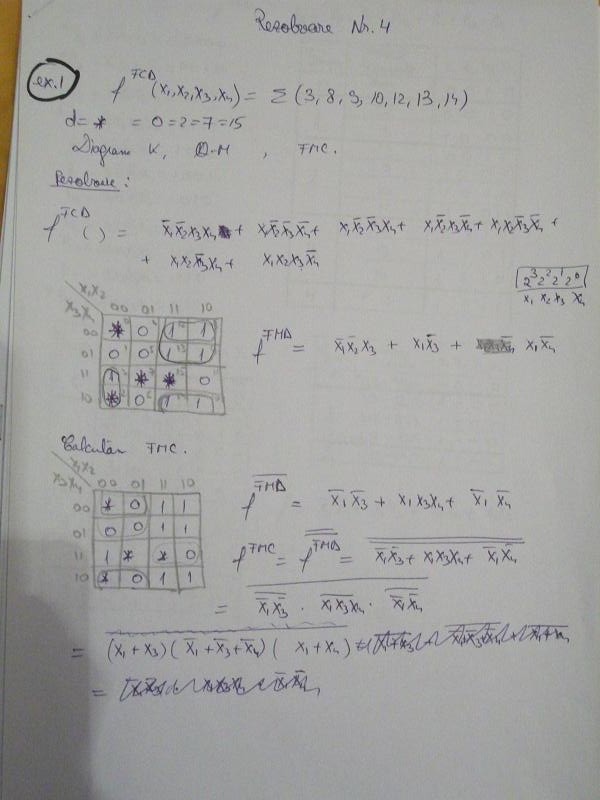 Rezolvare Nr. 4
ex.1 f^FCD (x₁,x₂,x₃,x₄) = Σ (3, 8, 9, 10, 12, 13, 14)
d= * = 0=2=7=15
Diagram K, Q-M , FMC.
Rezolvare:
f^FCD ( ) = x̄₁x̄₂x₃x₄ + x₁x̄₂x̄₃x̄₄ + x₁x̄₂x̄₃x₄ + x₁x̄₂x₃x̄₄ + x₁x₂x̄₃x̄₄ +
+ x₁x₂x̄₃x₄ + x₁x₂x₃x̄₄
2³2²2¹2⁰
x₁ x₂ x₃ x₄
x₁x₂
x₃x₄ 00 01 11 10
00 * 0 1 1
01 0 0 1 1
11 1 * * 0
10 * 0 1 1
f^FMD = x̄₁x̄₂x₃ + x₁x̄₃ + x₁x̄₄
Calculăm FMC.
x₁x₂
x₃x₄ 00 01 11 10
00 * 0 1 1
01 0 0 1 1
11 1 * * 0
10 * 0 1 1
f^F̅M̅D̅ = x̄₁x̄₃ + x₁x₃x₄ + x̄₁x̄₄
f^FMC = f^F̿M̿D̿ = x̄₁x̄₃ + x₁x₃x₄ + x̄₁x̄₄
= x̄₁x̄₃ · x₁x₃x₄ · x̄₁x̄₄
= (x₁+x₃)(x̄₁+x̄₃+x̄₄)(x₁+x₄)
=